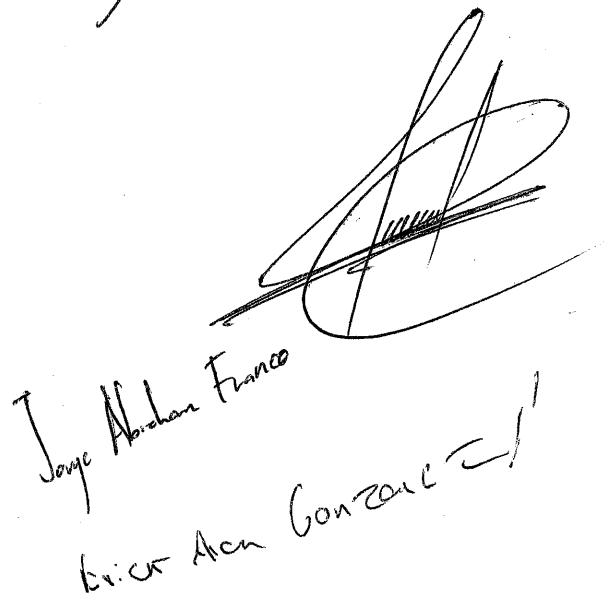 Jorge Abraham Franco
Erick Alan Gonzalez